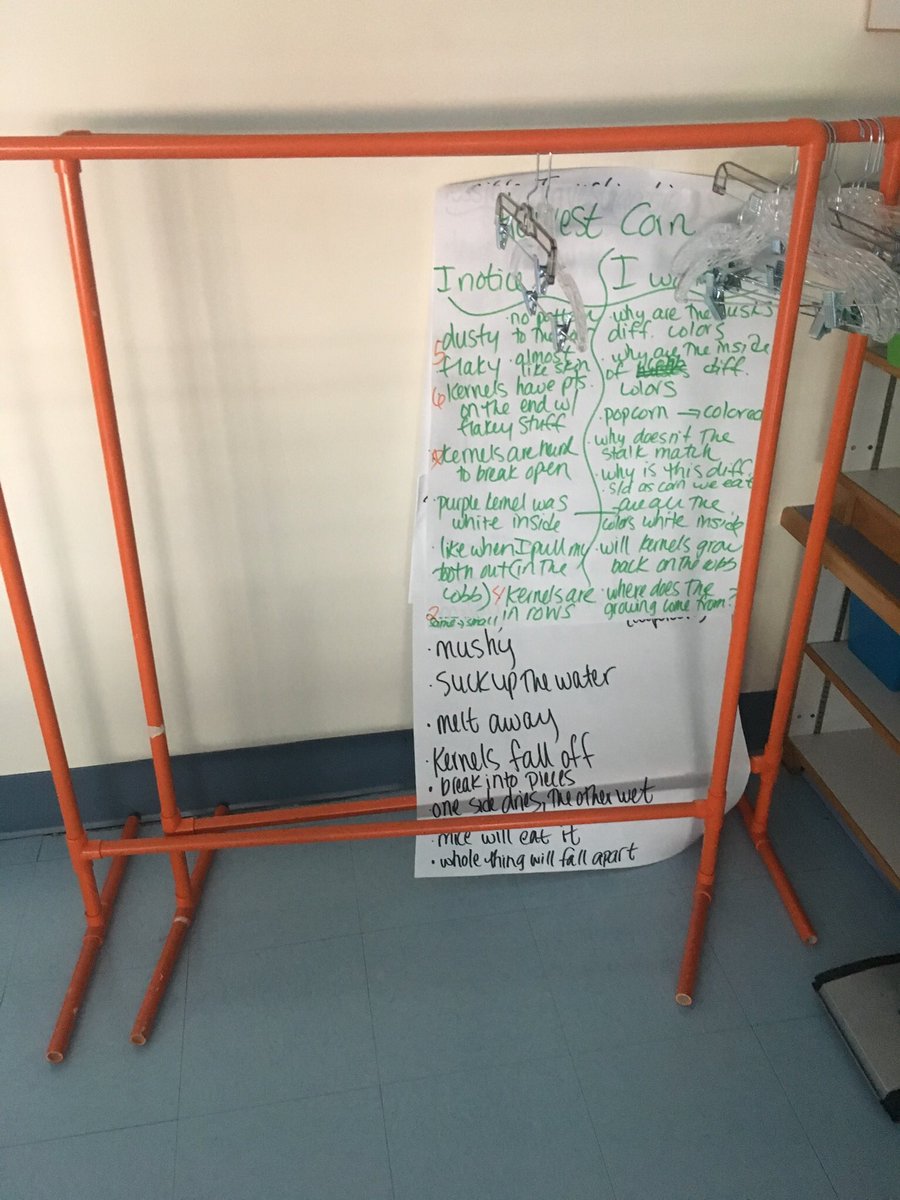 est Corn
I notice
no
dusty to the
5 flaky almost like skin
6 kernels have pts.
on the end w/
flakey stuff
kernels are hard
to break open
purple kernel was
white inside
like when I pull my
out (in the
cobb) 4 kernels are
in rows
2
I w
why are the husks
diff. colors
why are the inside
of diff.
colors
popcorn → colored
why doesn't the
stalk match
why is this diff.
s/d as corn we eat
are all the
colors white inside
will kernels grow
back on the cobb
where does the
growing come from?
mushy
suck up the water
melt away
kernels fall off
break into pieces
one side dries, the other wet
mice will eat it
whole thing will fall apart